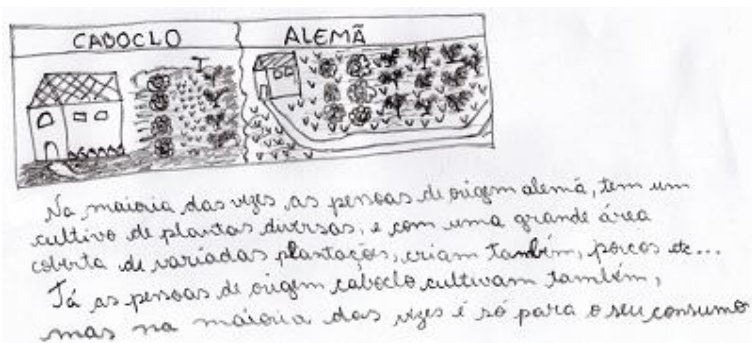 CABOCLO ALEMÃ
Na maioria das vezes as pessoas de origem alemã, tem um
cultivo de plantas diversas, e com uma grande área
coberta de variadas plantações, criam também, porcos etc...
Já as pessoas de origem caboclo cultivam também,
mas na maioria das vezes é só para o seu consumo